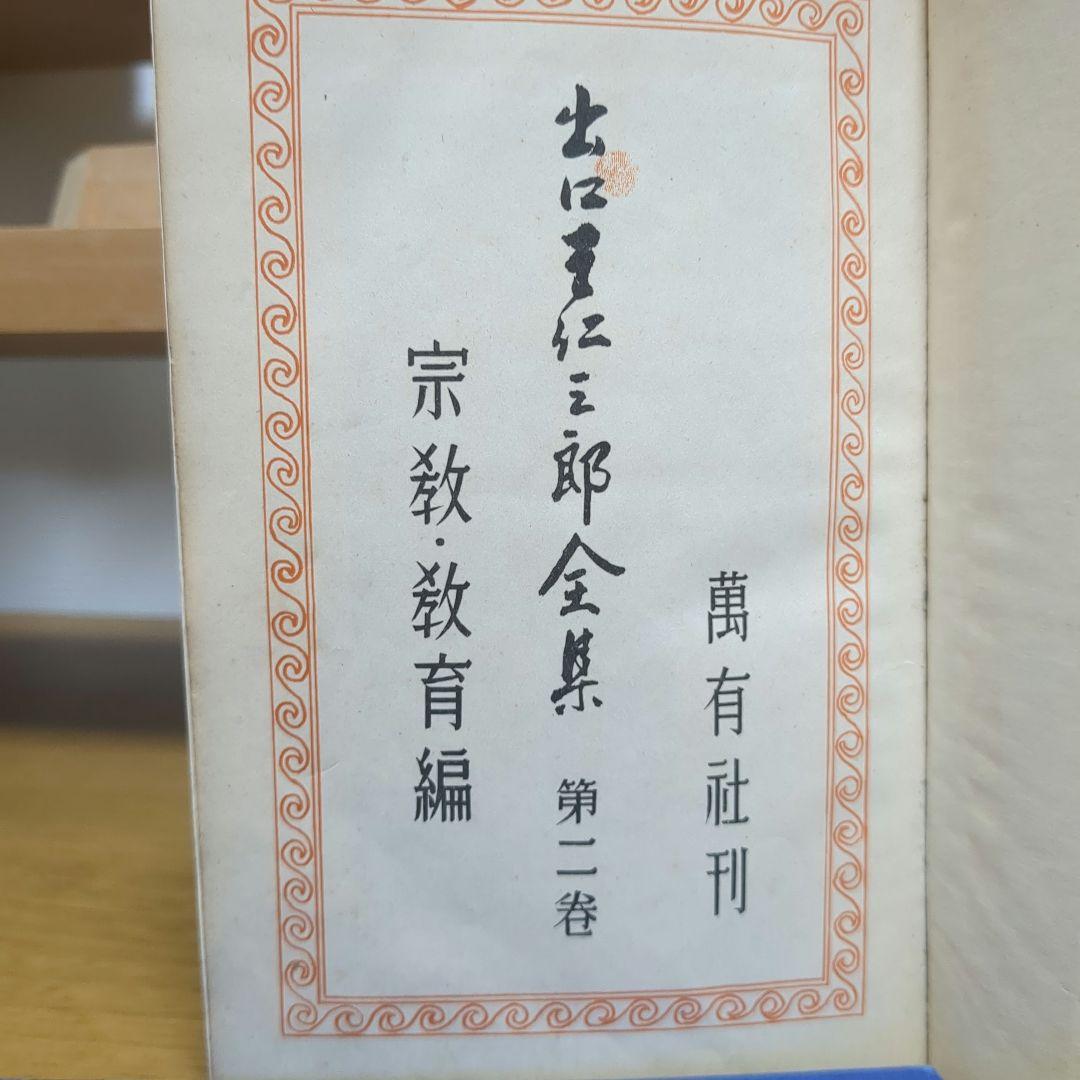 萬有社刊
出口王仁三郎全集 第二卷
宗教・教育編